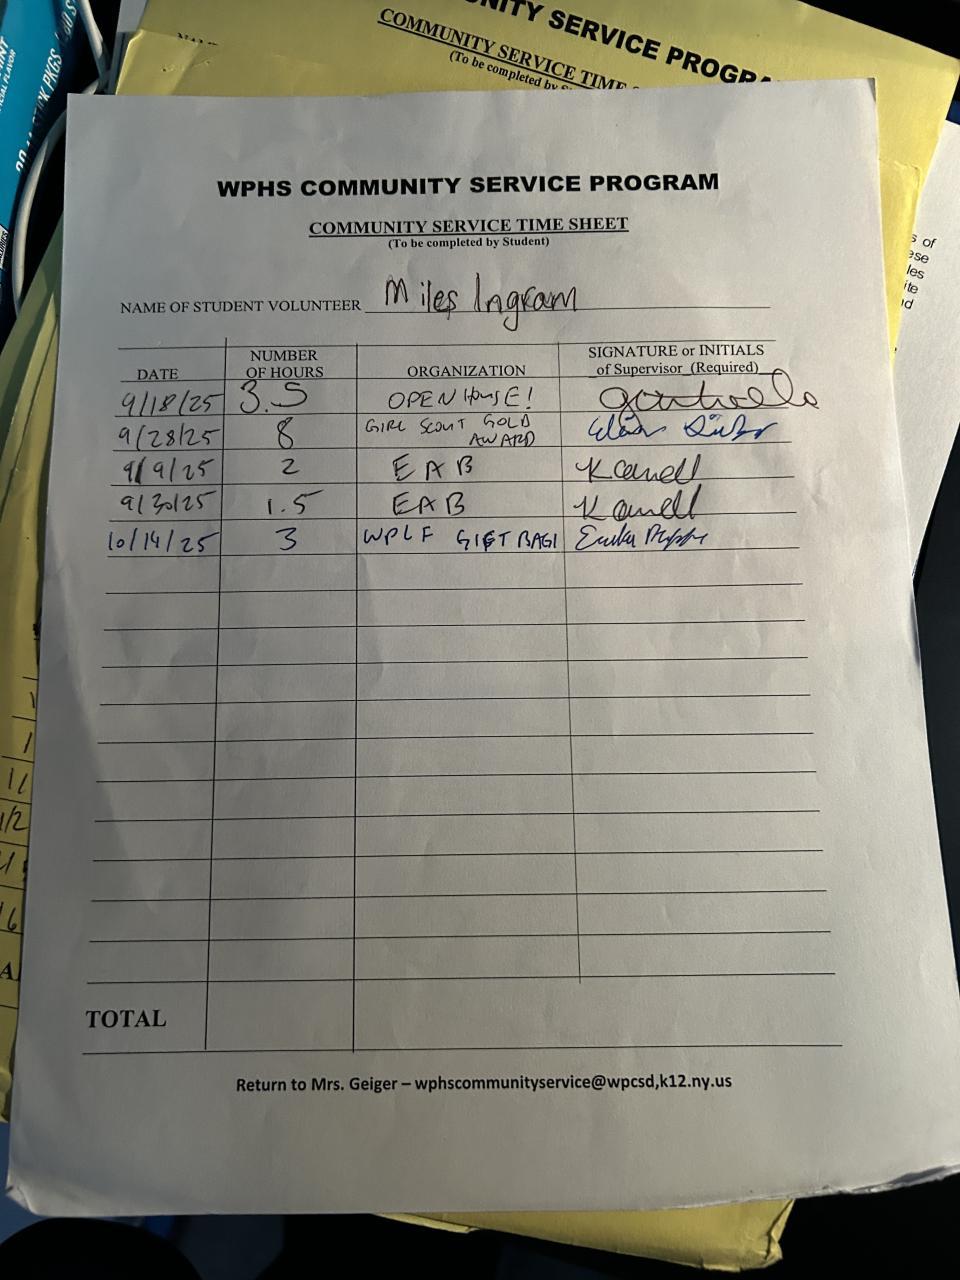 COMMUNITY SERVICE PROGRA
COMMUNITY SERVICE TIME
(To be completed by
WPHS COMMUNITY SERVICE PROGRAM
COMMUNITY SERVICE TIME SHEET
(To be completed by Student)
NAME OF STUDENT VOLUNTEER Miles Ingram
DATE NUMBER OF HOURS ORGANIZATION SIGNATURE or INITIALS of Supervisor (Required)
9/18/25 3.5 OPEN HOUSE!
9/28/25 8 GIRL SCOUT GOLD AWARD
9/9/25 2 EAB
9/30/25 1.5 EAB
10/14/25 3 WPLF GIFT BAGI
TOTAL
Return to Mrs. Geiger – wphscommunityservice@wpcsd,k12.ny.us